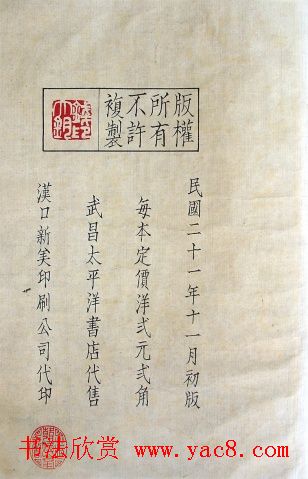 版權
所有
不許
複製
民國二十一年十一月初版
每本定價洋弍元弍角
武昌太平洋書店代售
漢口新美印刷公司代印
书法欣赏 www.yac8.com